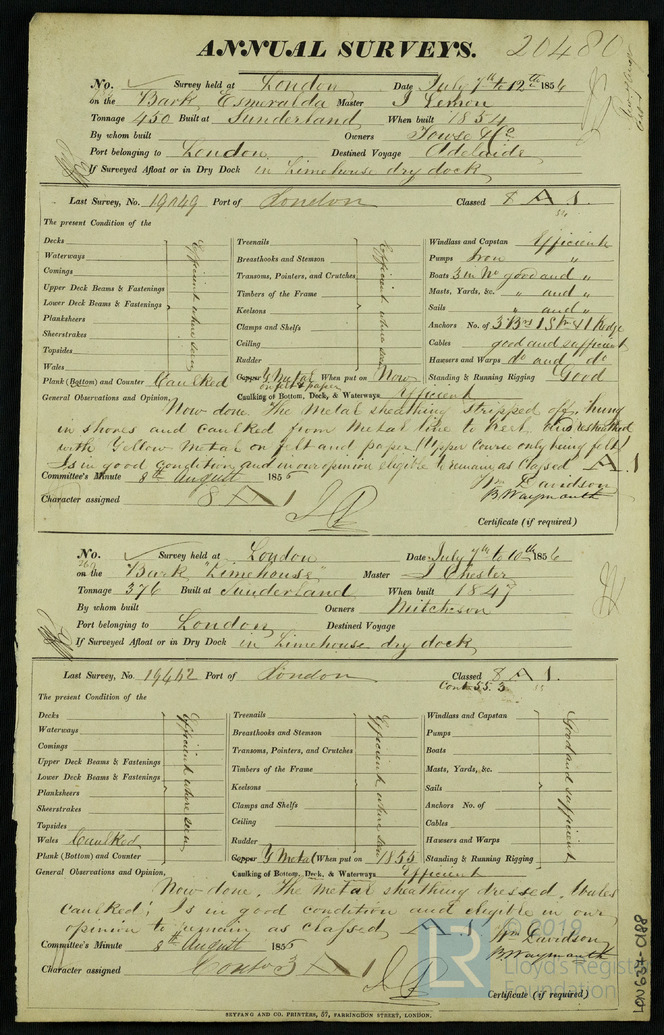 ANNUAL SURVEYS. 20480
No. Survey held at London Date July 7th to 12th 1856
on the Bark Esmeralda Master J Lemon
Tonnage 450 Built at Sunderland When built 1854
By whom built Owners Towse & Co
Port belonging to London Destined Voyage Adelaide
If Surveyed Afloat or in Dry Dock in Limehouse dry dock
Last Survey, No. Port of London Classed 8 A 1.
The present Condition of the
Decks
Waterways
Comings
Upper Deck Beams & Fastenings
Lower Deck Beams & Fastenings
Planksheers
Sheerstrakes
Topsides
Wales
Efficient where seen
Plank (Bottom) and Counter Caulked
Treenails
Breasthooks and Stemson
Transoms, Pointers, and Crutches
Timbers of the Frame
Keelsons
Clamps and Shelfs
Ceiling
Rudder
Efficient where seen
Copper Y Metal When put on Now
on felt & paper
Caulking of Bottom, Deck, & Waterways Efficient
Windlass and Capstan Efficient
Pumps Iron "
Boats 3 in No good and "
Masts, Yards, &c. " and "
Sails " and "
Anchors No. of 3 Brs 1 Stm & 1 Kedge
Cables good and sufficient
Hawsers and Warps do and do
Standing & Running Rigging Good
General Observations and Opinion,
Now done. The Metal sheathing stripped off, hung
in shores and caulked from Metal line to Keel. And resheathed
with Yellow Metal on felt and paper (Upper Course only being felt)
Is in good condition, and in our opinion eligible to remain as Classed A.1
Committee's Minute 8th August 1856
Wm Davidson
B. Waymouth
Character assigned 8 A 1
Certificate (if required)
No. Survey held at London Date July 7th to 10th 1856
on the Bark "Limehouse" Master J Chester
Tonnage 376 Built at Sunderland When built 1847
By whom built Owners Mitcheson
Port belonging to London Destined Voyage
If Surveyed Afloat or in Dry Dock in Limehouse dry dock
Last Survey, No. 19442 Port of London Classed 8 A 1.
Cont 55. 3
The present Condition of the
Decks
Waterways
Comings
Upper Deck Beams & Fastenings
Lower Deck Beams & Fastenings
Planksheers
Sheerstrakes
Topsides
Efficient where seen
Wales Caulked
Plank (Bottom) and Counter
Treenails
Breasthooks and Stemson
Transoms, Pointers, and Crutches
Timbers of the Frame
Keelsons
Clamps and Shelfs
Ceiling
Rudder
Efficient where seen
Copper Y Metal When put on 1855
Caulking of Bottom, Deck, & Waterways Efficient
Windlass and Capstan
Pumps
Boats
Masts, Yards, &c.
Sails
Anchors No. of
Cables
Hawsers and Warps
Standing & Running Rigging
Good and sufficient
General Observations and Opinion,
Now done. The Metal sheathing dressed. Wales
caulked! Is in good condition and eligible in our
opinion to remain as classed A.1
Committee's Minute 8th August 1856
Wm Davidson
B. Waymouth
Character assigned Contd 3 A 1
Certificate (if required)
SEYFANG AND CO. PRINTERS, 57, FARRINGDON STREET, LONDON.
© 2019
LR Lloyd's Register
Foundation
LON634-0188